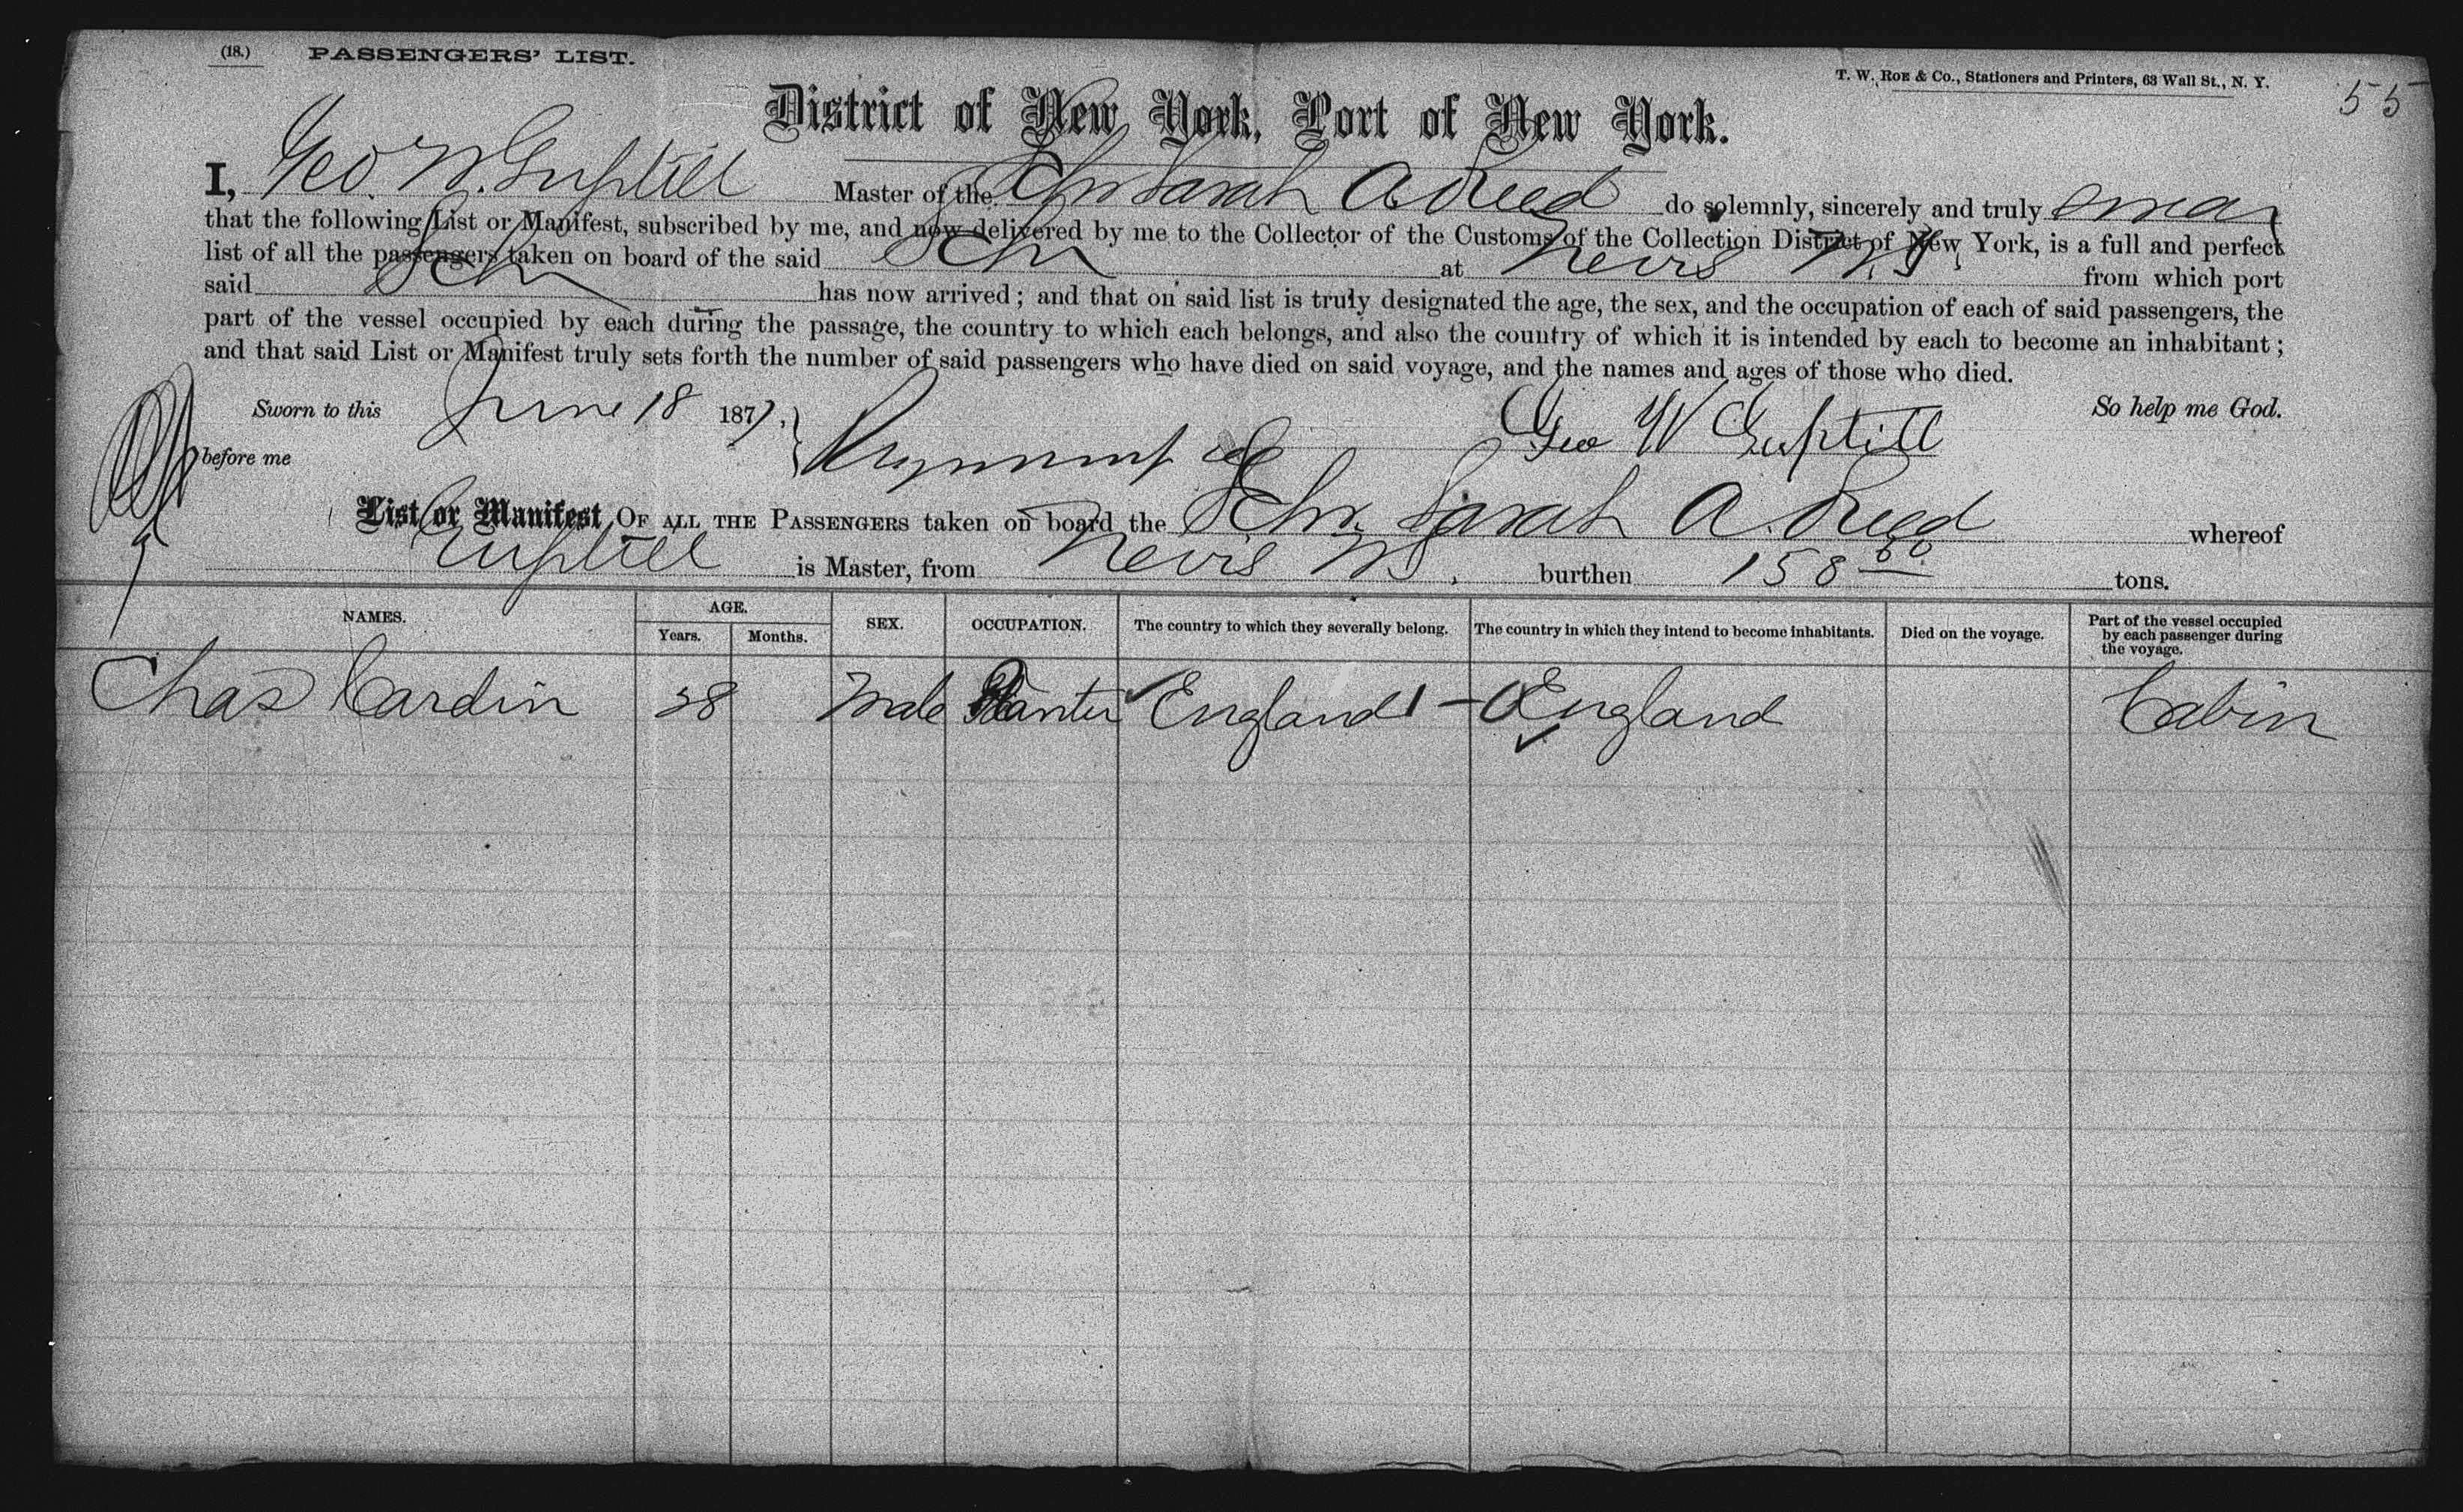 (18.) PASSENGERS' LIST.
T. W. ROE & Co., Stationers and Printers, 63 Wall St., N. Y.
55
District of New York, Port of New York.
I, Geo. W. Guptill Master of the Schr Sarah A Reed do solemnly, sincerely and truly swear
that the following List or Manifest, subscribed by me, and now delivered by me to the Collector of the Customs of the Collection District of New York, is a full and perfect
list of all the passengers taken on board of the said Schr at Nevis W. I. from which port
said Schr has now arrived; and that on said list is truly designated the age, the sex, and the occupation of each of said passengers, the
part of the vessel occupied by each during the passage, the country to which each belongs, and also the country of which it is intended by each to become an inhabitant;
and that said List or Manifest truly sets forth the number of said passengers who have died on said voyage, and the names and ages of those who died.
Sworn to this June 18 1877. So help me God.
before me Geo W Guptill
List or Manifest OF ALL THE PASSENGERS taken on board the Schr. Sarah A. Reed whereof
Guptill is Master, from Nevis W I. burthen 158 60 tons.
NAMES. AGE. SEX. OCCUPATION. The country to which they severally belong. The country in which they intend to become inhabitants. Died on the voyage. Part of the vessel occupied by each passenger during the voyage.
Years. Months.
Chas Cardin 28 Male Planter England 1 - England Cabin